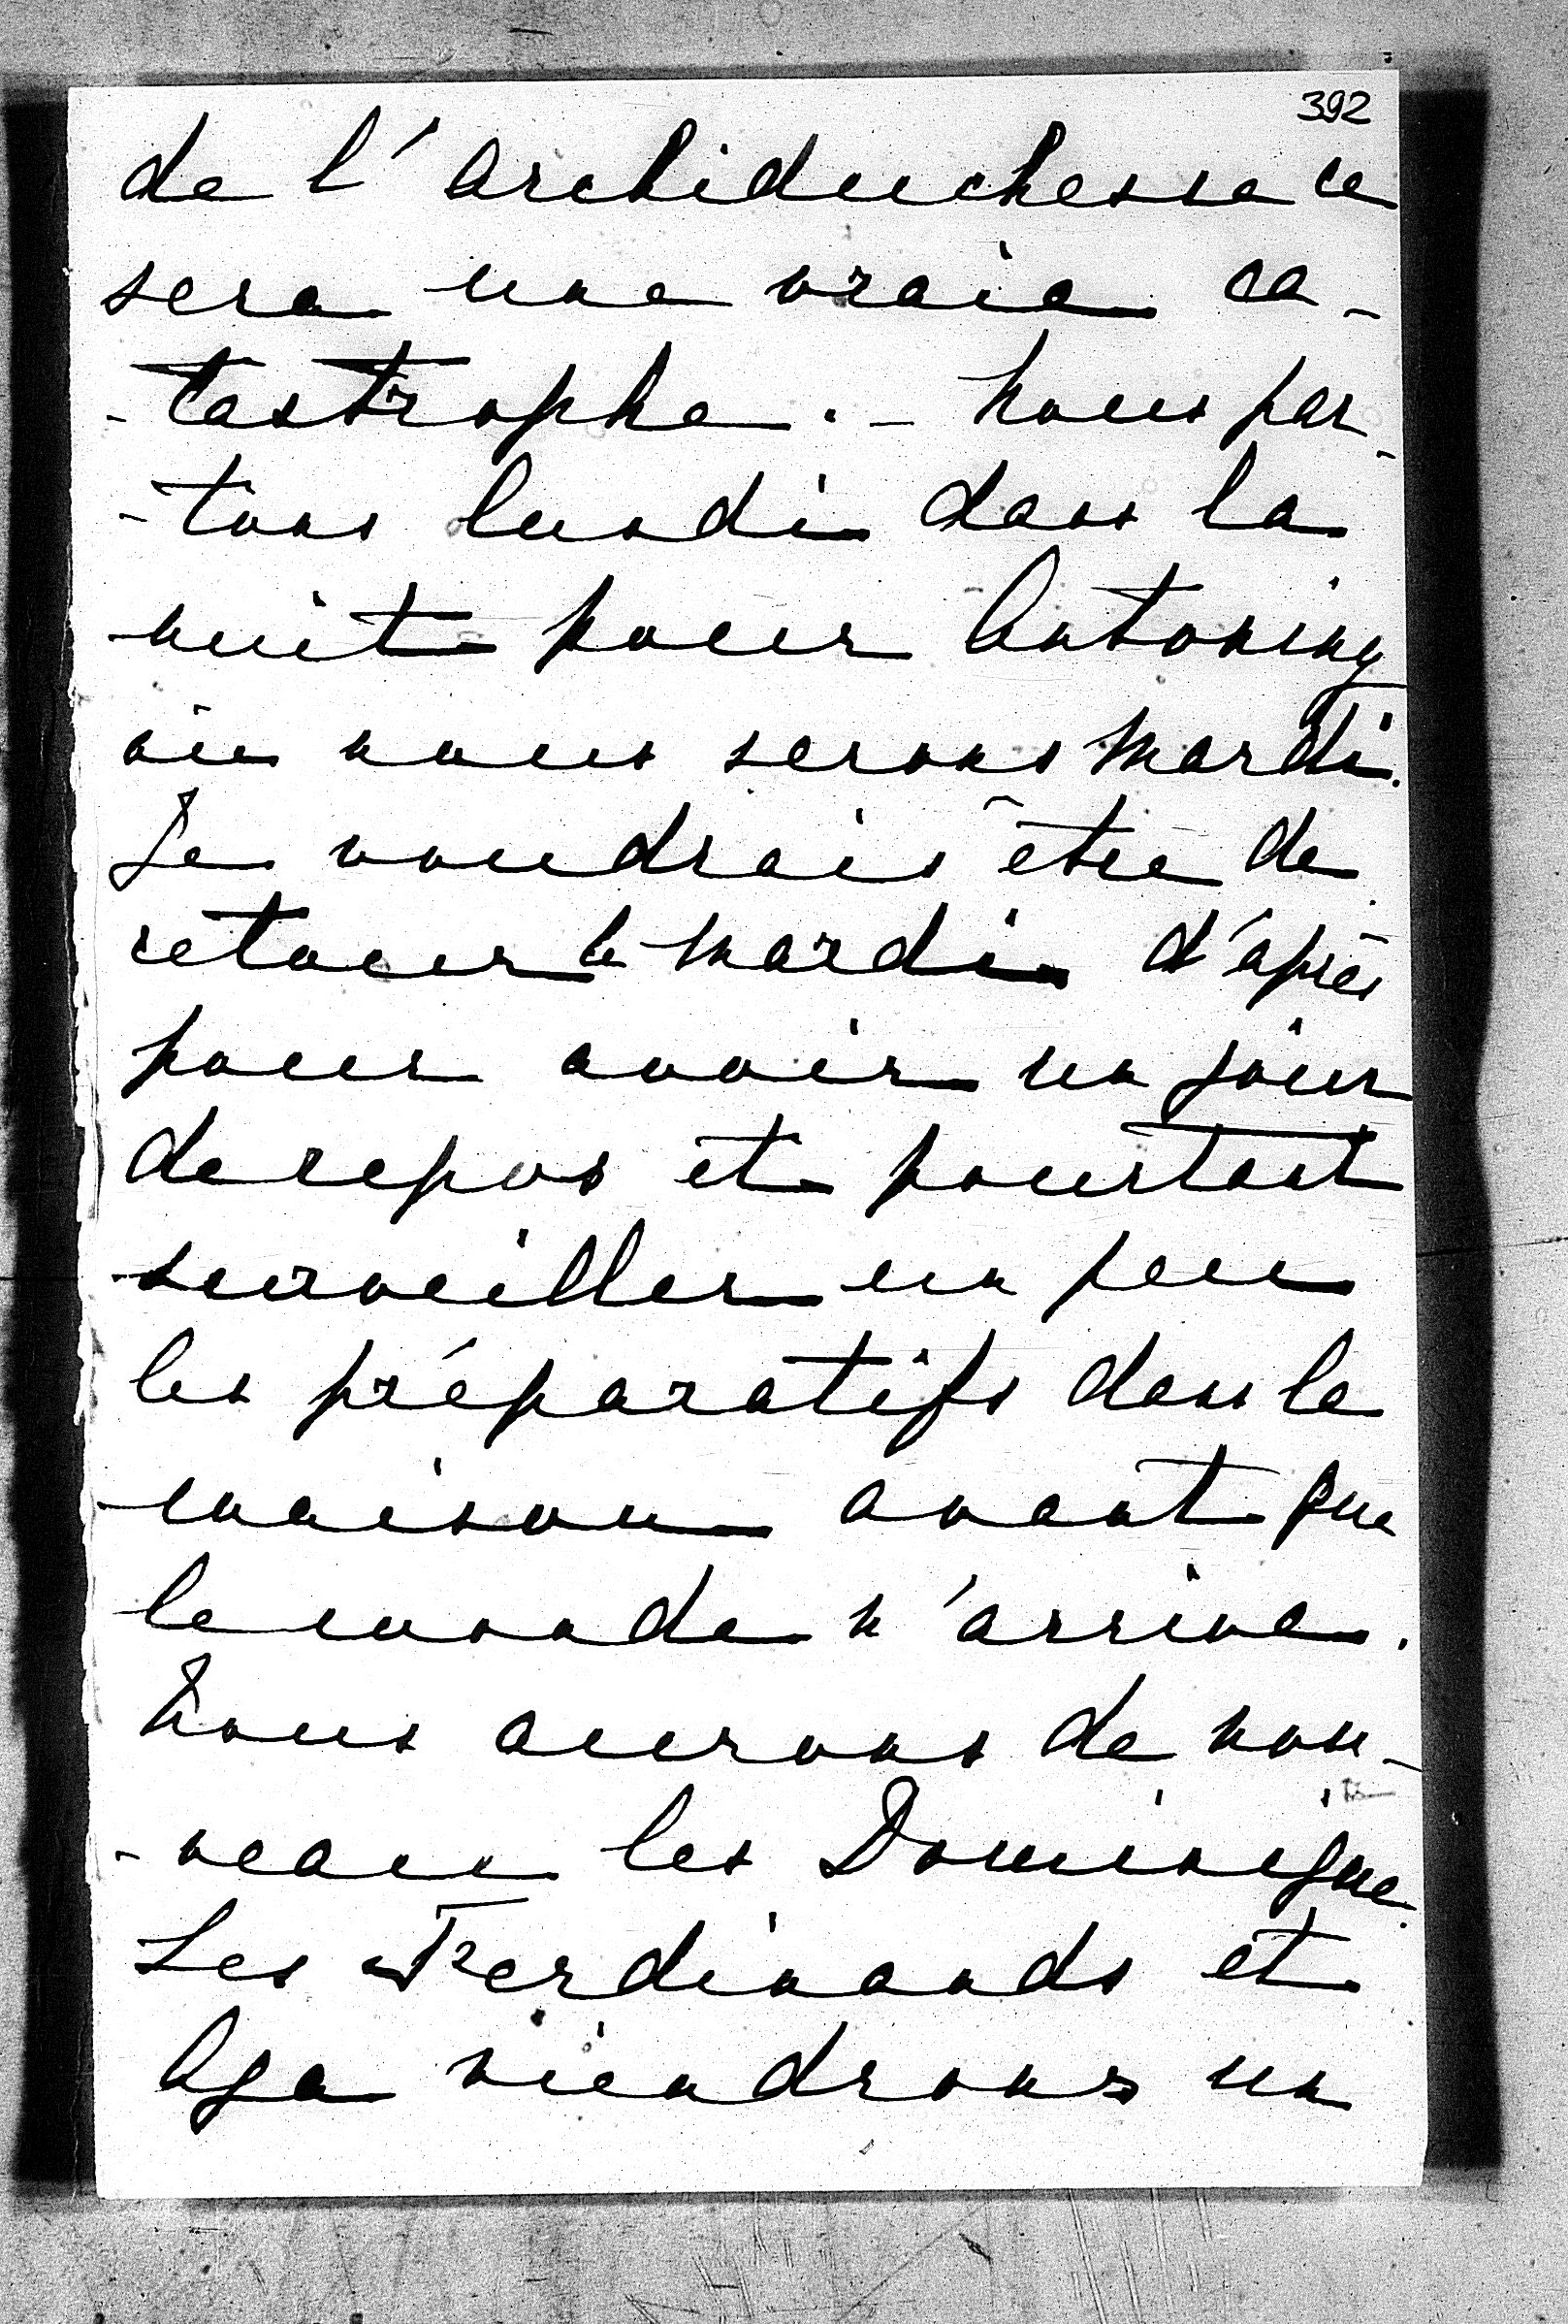 392
de l'Archiduchesse ce
sera une vraie ca-
-tastrophe. - Nous par-
-tons lundi dans la
nuit pour Antoniny
où nous serons Mardi.
Je voudrais être de
retour le Mardi d'après
pour avoir un jour
de repos et pourtant
surveiller un peu
les préparatifs dans la
maison avant que
le monde n'arrive.
Nous aurons de nou-
-veau les Dominique.
Les Ferdinands et
Aga viendrons un